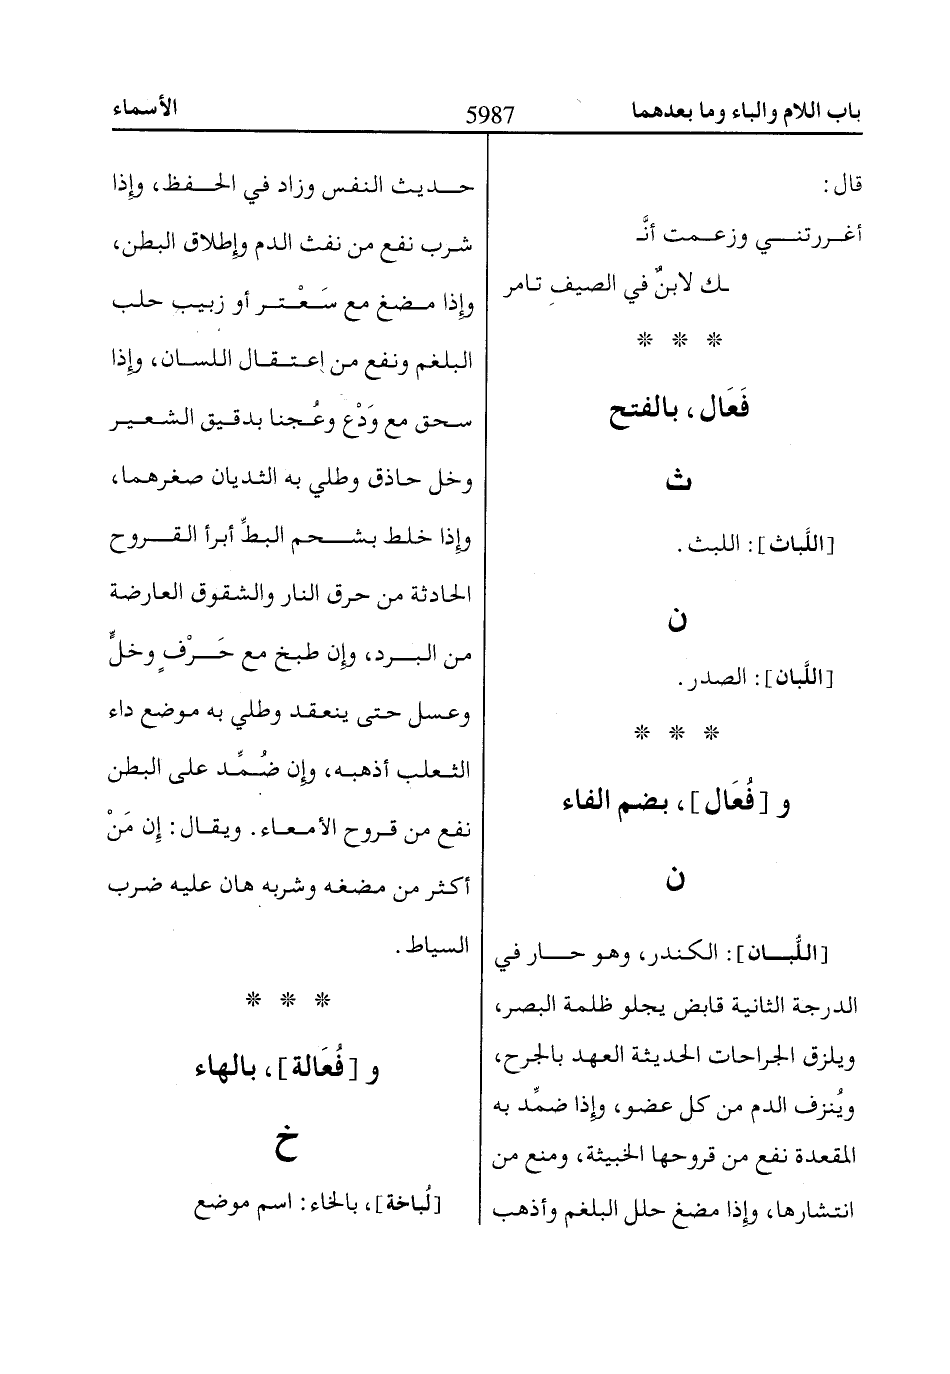 باب اللام والباء وما بعدهما
5987
الأسماء
قال:
أغـررتنـــي وزعــمـت أنَّـ
ـك لابنٌ في الصيفِ تامر
* * *
فَعَال، بالفتح
ث
[اللَّباث]: اللبث.
ن
[اللَّبان]: الصدر.
* * *
و [فُعَال]، بضم الفاء
ن
[اللُّبــان]: الكندر، وهو حــار في
الدرجة الثانية قابض يجلو ظلمة البصر،
ويلزق الجراحات الحديثة العهد بالجرح،
ويُنزف الدم من كل عضو، وإذا ضمِّد به
المقعدة نفع من قروحها الخبيثة، ومنع من
انتشارها، وإذا مضغ حلل البلغم وأذهب
حــديث النفس وزاد في الحــفظ، وإذا
شرب نفع من نفث الدم وإطلاق البطن،
وإذا مـضغ مع سَـعْـتـر أو زبيب حلب
البلغم ونفع من إعتـقال اللسـان، وإذا
سـحق مع وَدْع وعُـجنا بدقـيق الشـعيـر
وخل حاذق وطلي به الثديان صغرهما،
وإذا خلط بشــحم البطِّ أبرأ القــروح
الحادثة من حرق النار والشقوق العارضة
من البــرد، وإن طبخ مع حَــرْفٍ وخلٍّ
وعسل حتى ينعقد وطلي به موضع داء
الثعلب أذهبه، وإن ضُمِّد على البطن
نفع من قروح الأمعاء. ويقال: إن مَنْ
أكثر من مضغه وشربه هان عليه ضرب
السياط.
* * *
و [فُعَالة]، بالهاء
خ
[لُباخة]، بالخاء: اسم موضع